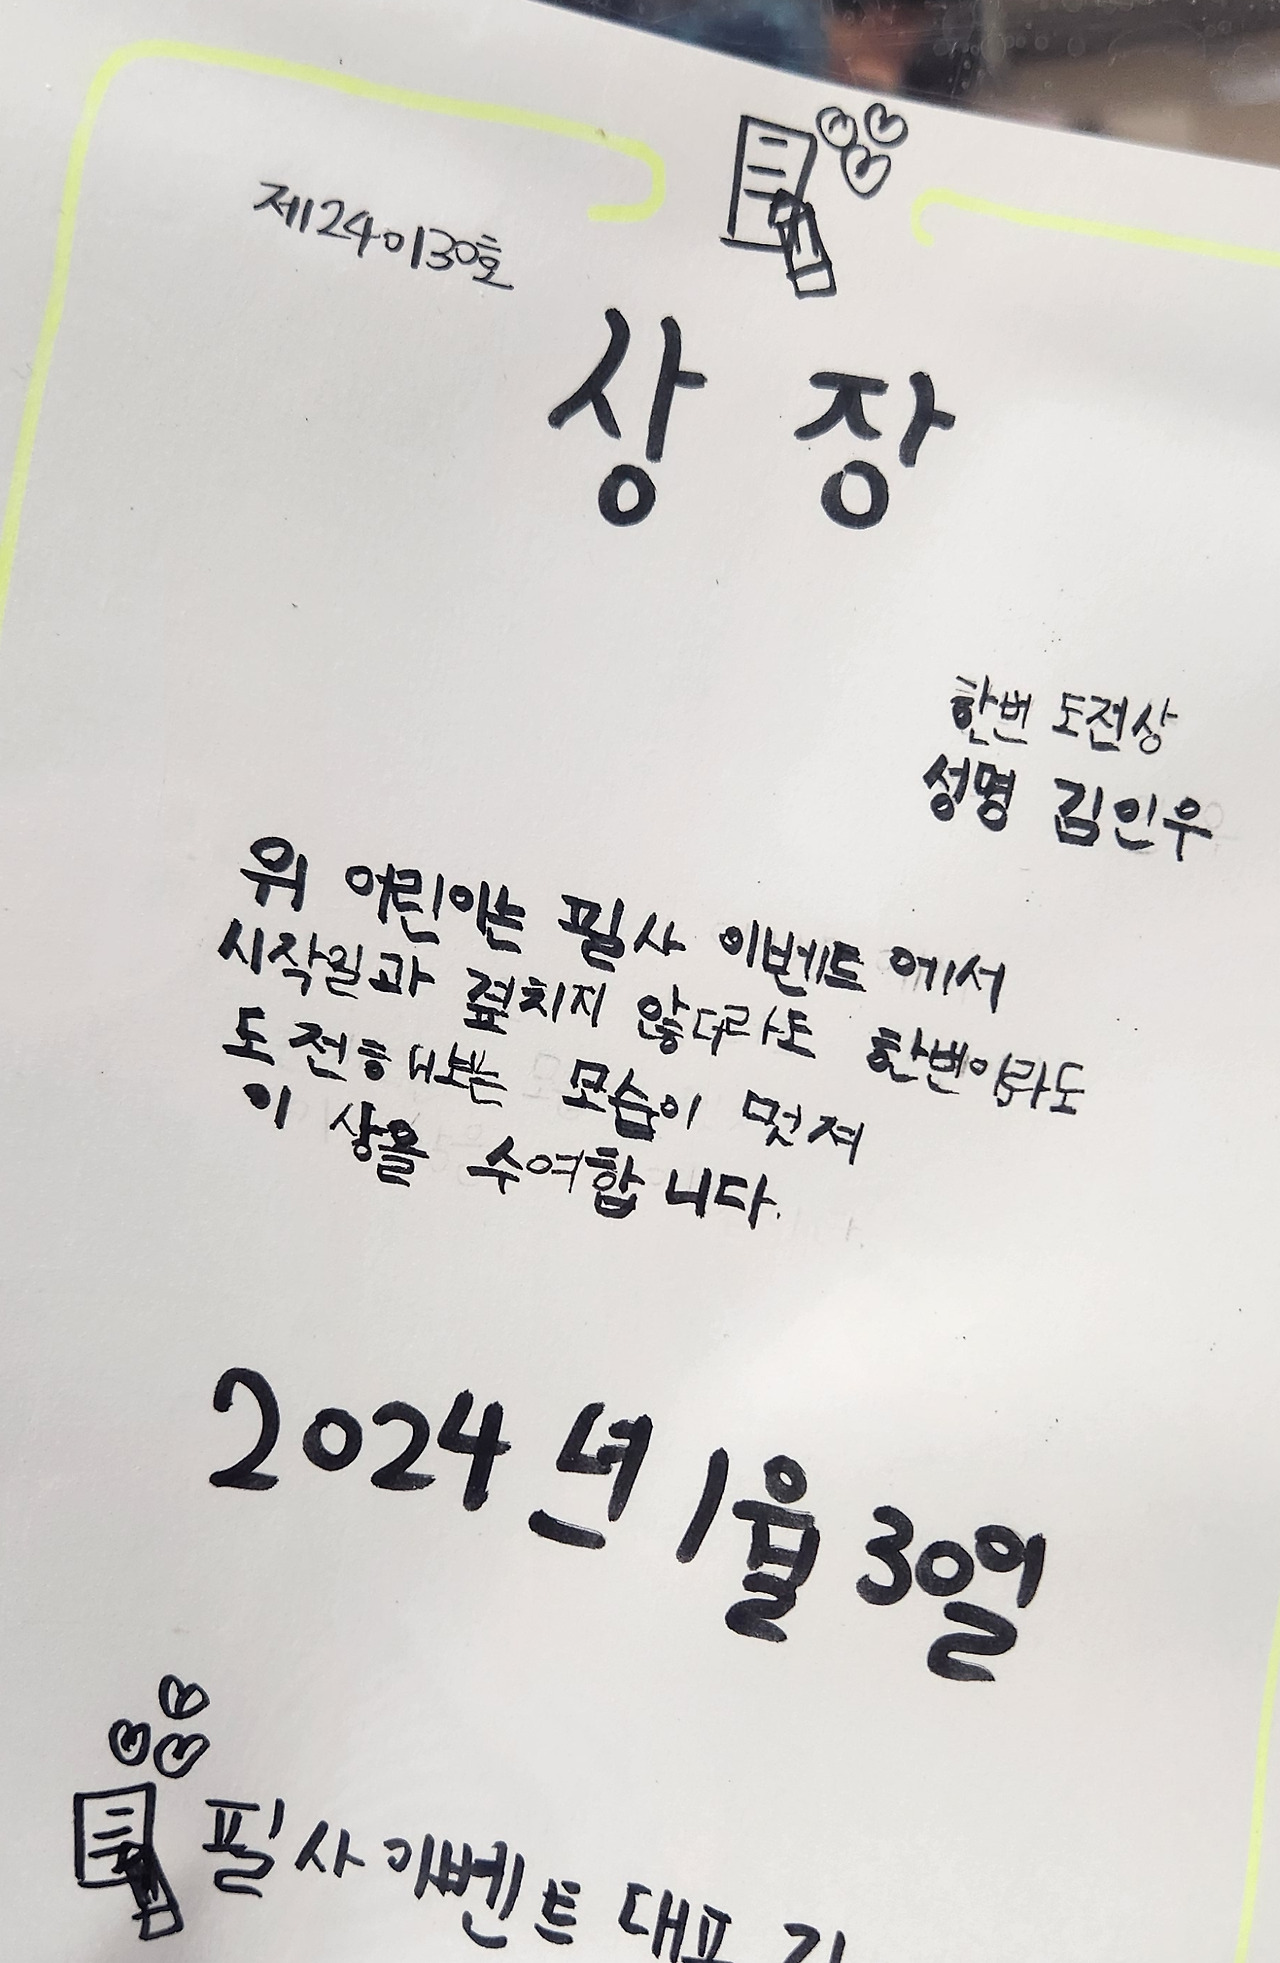 제240130호
상 장
한번 도전상
성명 김인우
위 어린이는 필사 이벤트에서
시작일과 겊치지 않더라도 한번이라도
도전해보는 모습이 멋져
이 상을 수여합니다.
2024년 1월 30일
필사이벤트 대표